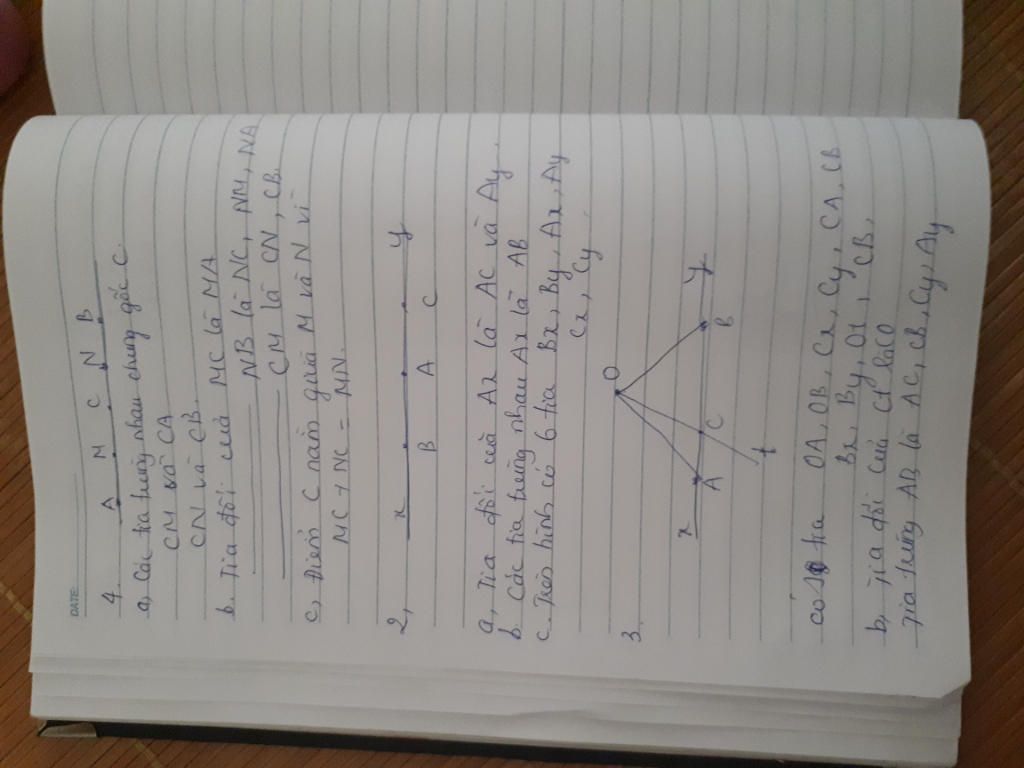 DATE:
4.
A M C N B
a, Các tia trùng nhau chung gốc C.
CM và CA
CN và CB.
b. Tia đối của MC là MA
NB là NC, NM, NA
CM là CN, CB.
c, Điểm C nằm giữa M và N vì
MC + NC = MN.
2,
x B A C y
a, Tia đối của Ax là AC và Ay.
b. Các tia trùng nhau Ax là AB
c. Trên hình có 6 tia Bx, By, Ax, Ay
Cx, Cy
3.
O
x A C B y
t
có tia OA, OB, Cx, Cy, CA, CB
Bx, By, Ot, CB,
b, Tia đối của Ct là CO
Tia trùng AB là AC, CB, Cy, Ay